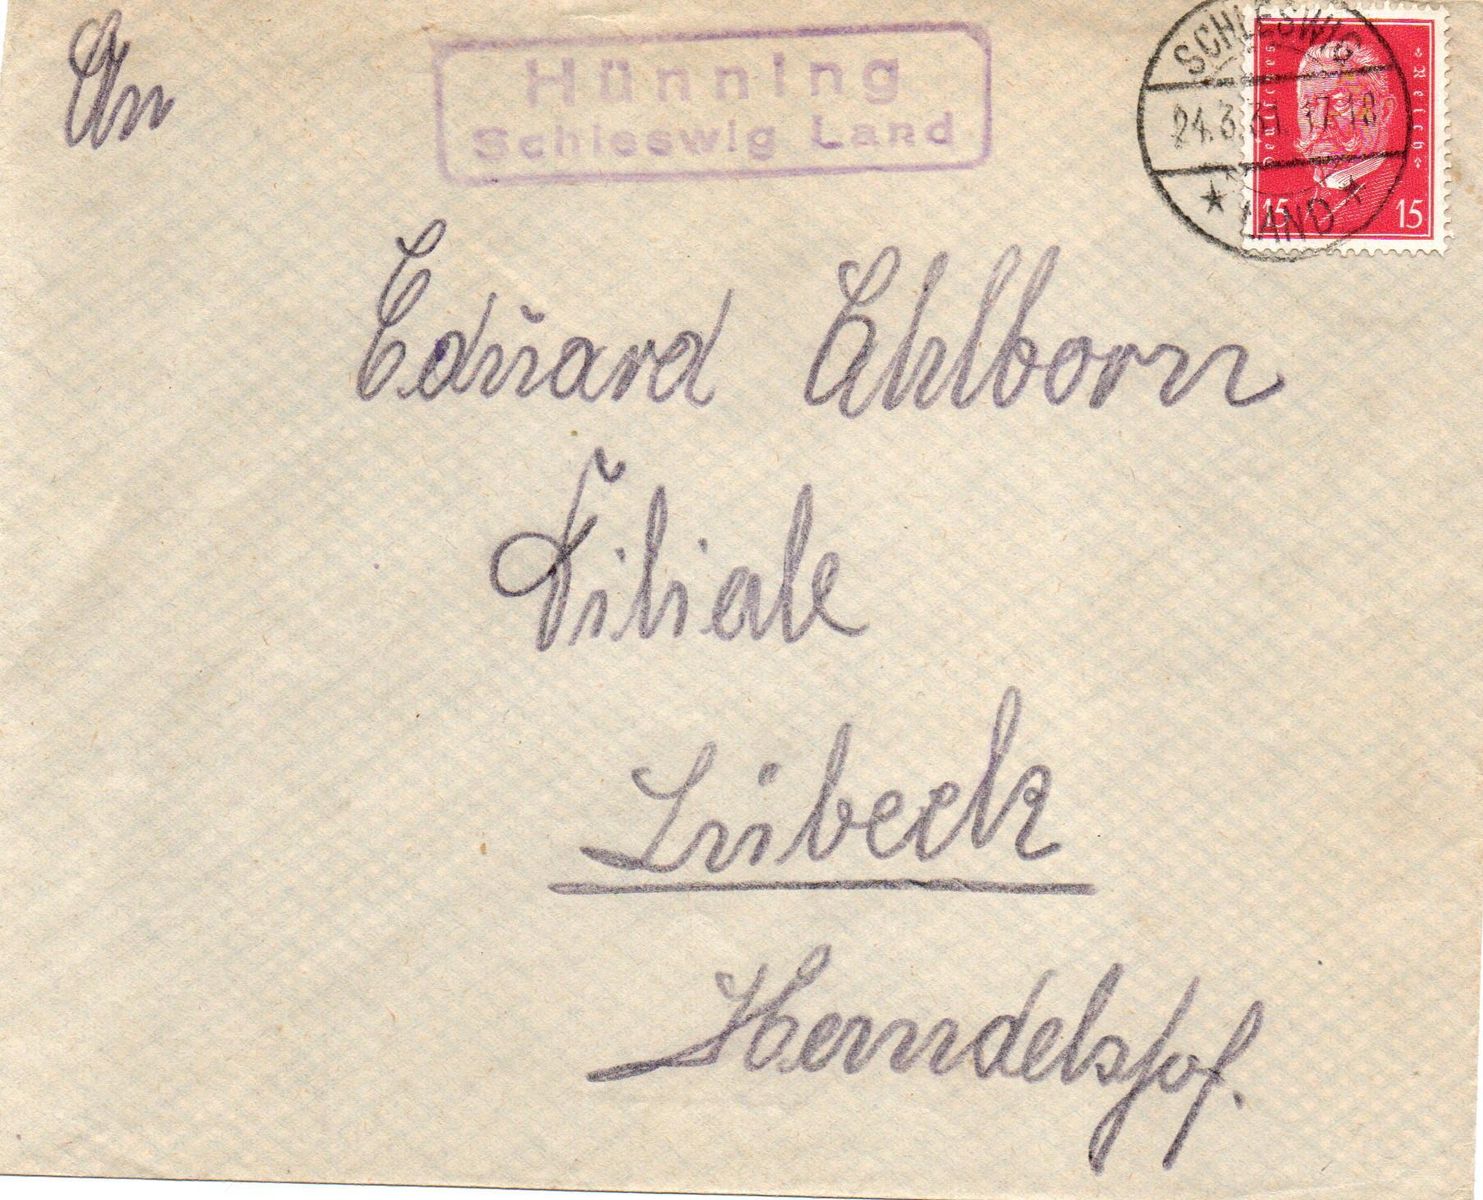 An
Hünning
Schleswig Land
SCHLESWIG
24.3.31 17-18
LAND
Deutsches Reich
15 15
Eduard Ahlborn
Filiale
Lübeck
Handelshof.